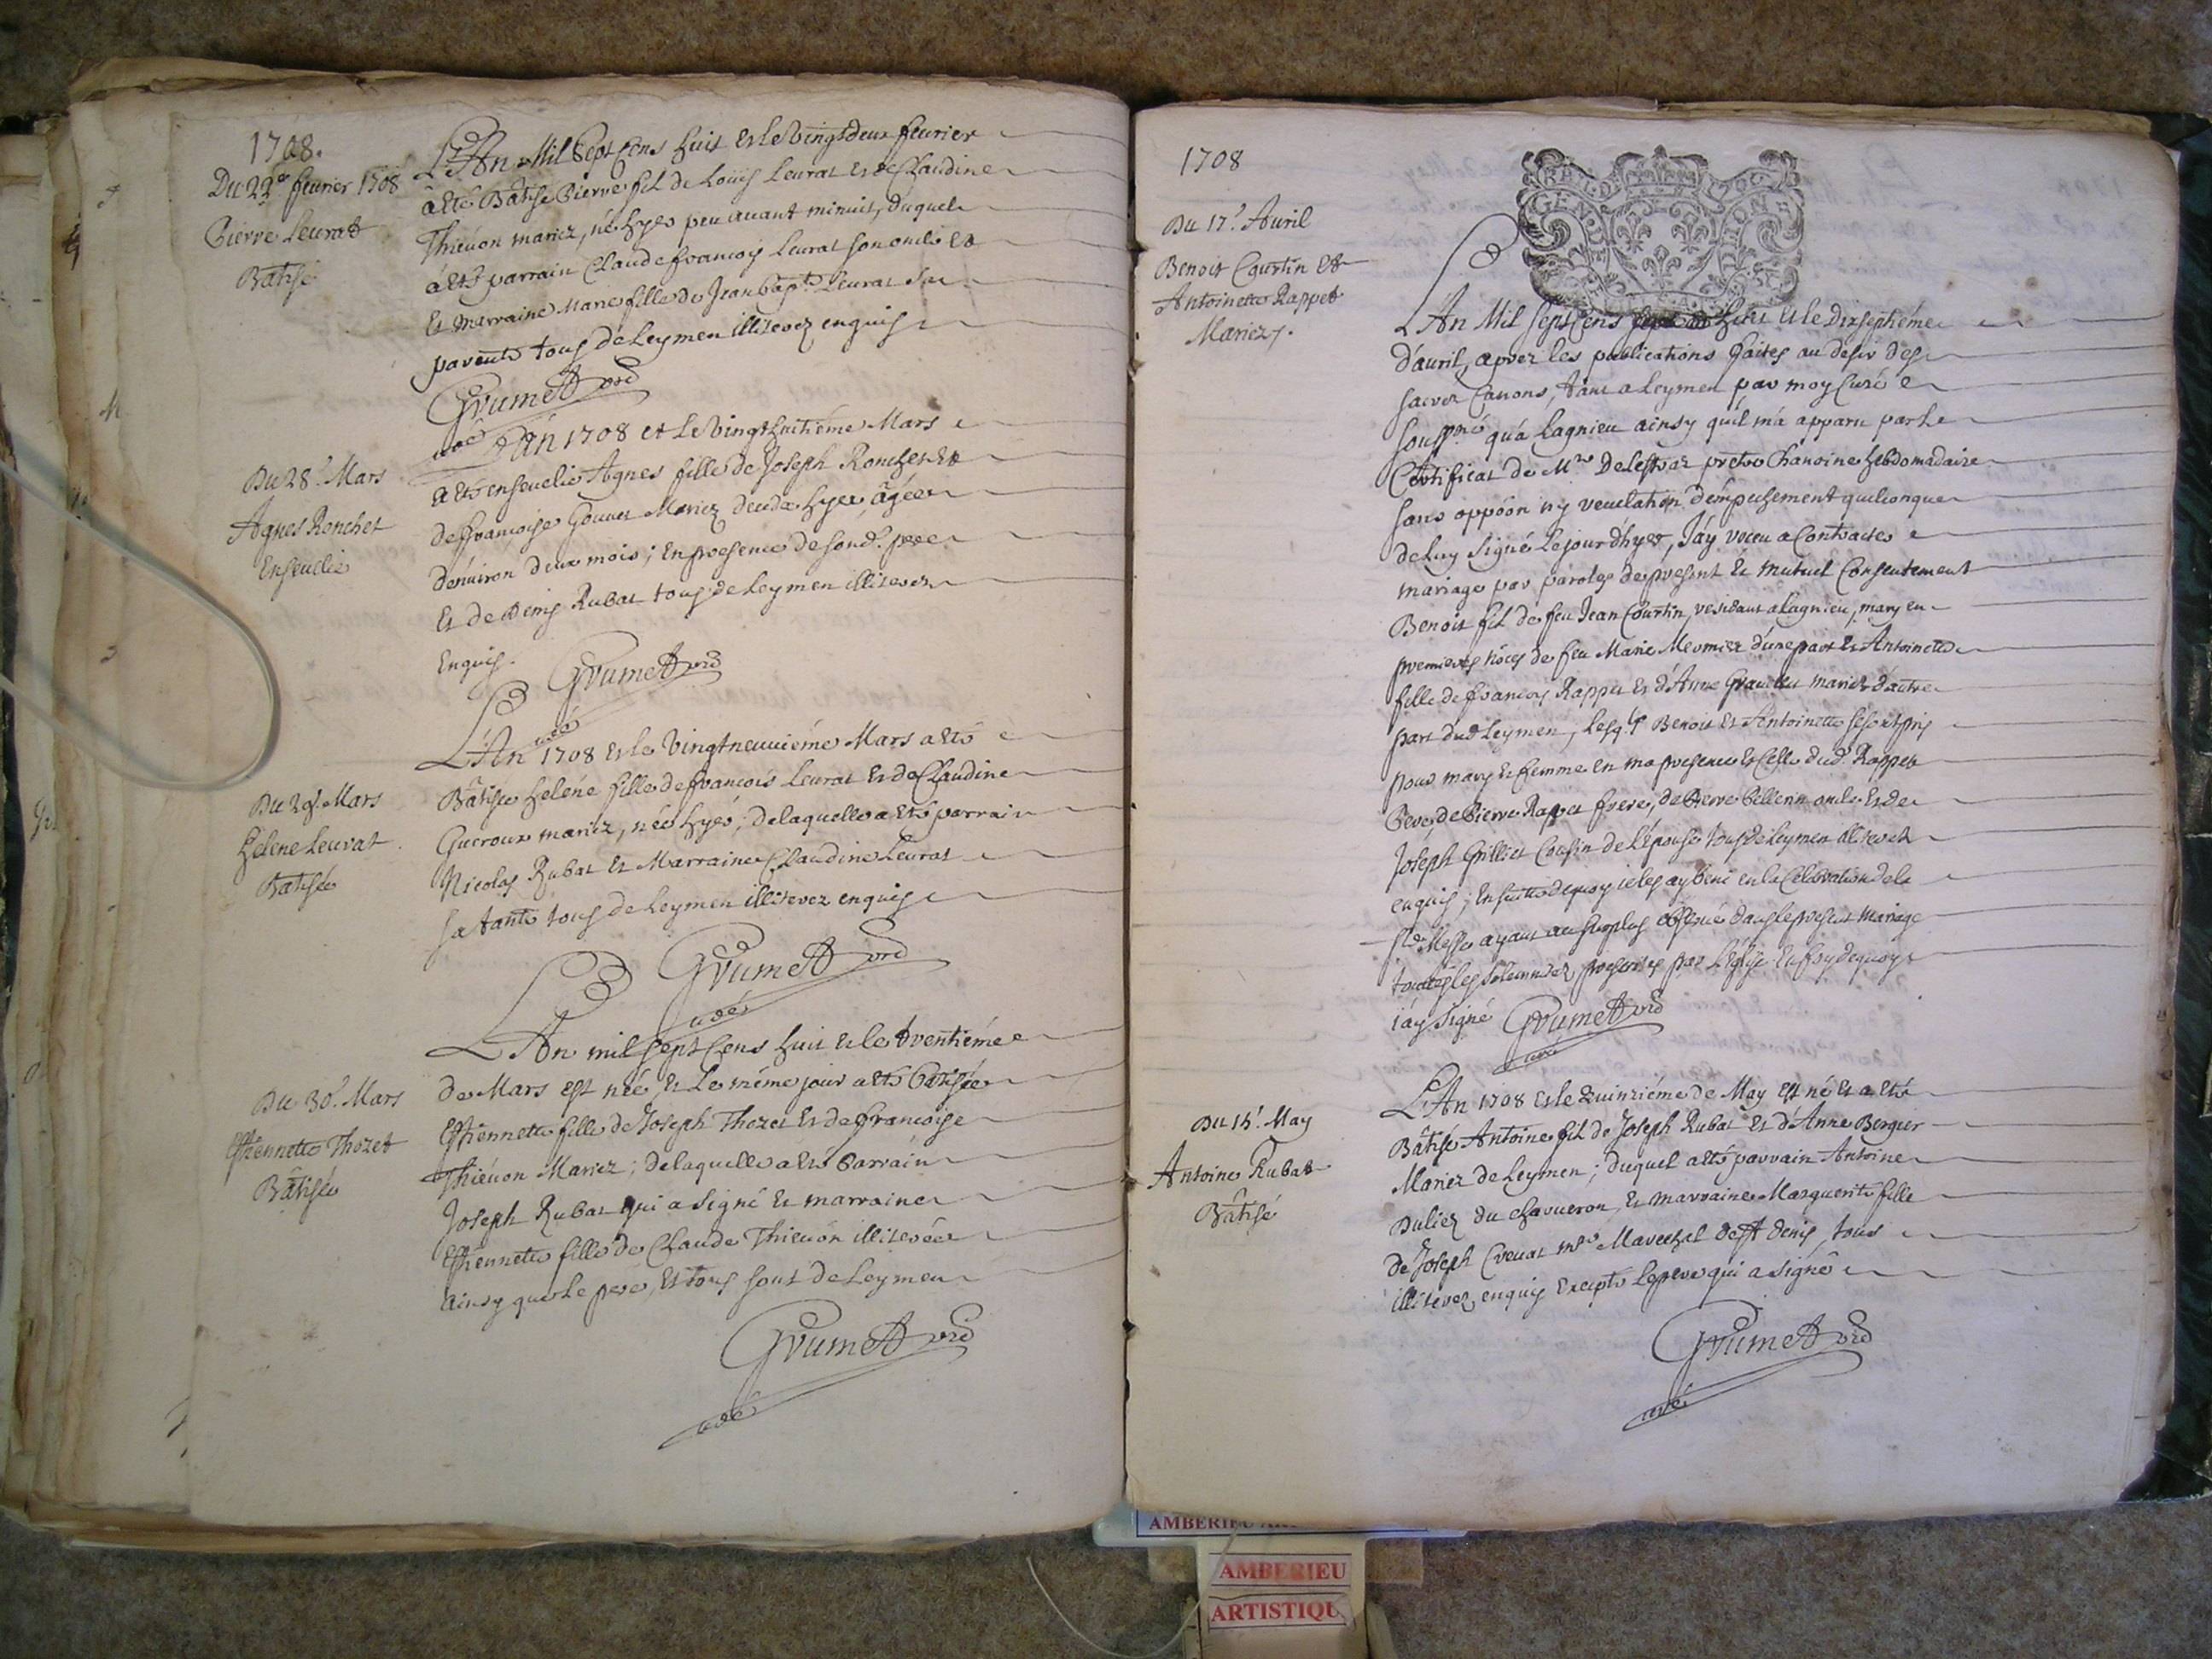 1708.
Du 22e feurier 1708
Pierre Leurat
Batisé
L'An Mil Sept Cens huit et le Vingtdeux feurier
a êté Bâtisé Pierre fil de Loüis Leurat et de Claudine
Thieuon mariez, né hyer peu auant minuit, duquel
a êté parrain Claude francois Leurat son oncle et
et marraine Marie fille de Jean bapte Leurat sa
parente tous de Leymen illiterez enquis
Grumet
curé
Du 28e Mars
Agnes Ronchet
Enseuelie
L'an 1708 et le Vingthuitiéme Mars
a êté enseuelie Agnes fille de Joseph Ronchet et
de françoise Gouuet Mariez decedée hyer, âgée
d'enuiron deux mois; en presence de sond. pere
et de Denis Rubat tous de Leymen illiterez
enquis.
Grumet
curé
Du 29e Mars
hélene Leurat
Batisée
L'An 1708 et le Vingtneuuiéme Mars a êté
Bâtisée héléne fille de francois Leurat et de Claudine
Gueroux mariez, née hyer; de laquelle a êté parrain
Nicolas Rubat et Marraine Claudine Leurat
sa tante tous de Leymen illiterez enquis
Grumet
curé
Du 30e Mars
Estiennette Thozet
Bâtisée
L'An mil sept Cens huit et le trentiéme
de Mars est née, et le méme jour a êté batisée
Estiennette fille de Joseph Thozet et de francoise
Thiéuon Mariez; de laquelle a êté parrain
Joseph Rubat qui a signé et marraine
Estiennette fille de Claude Thieuon illiterée
ainsy que le pere, et tous sont de Leymen
Grumet
curé
1708
GEN
Du 17e Auril
Benoit Courtin et
Antoinette Rappet
Mariez.
L'An Mil Sept Cens huit et le Dixseptiéme
d'auril, aprez les publications faites au desir des
sacrez Canons, tant a Leymen par moy Curé
soussné qu'a Lagnieu ainsy qu'il m'a apparu par le
Certificat de Mre prêtre Chanoine hebdomadaire
sans oppôôn ny reuelation d'empechement quelconque
de luy signé le jour d'hyer, J'ay receu a Contracter
mariage par paroles de present et mutuel Consentement
Benoit fil de feu Jean Courtin, residant a Lagnieu, mary en
premieres nôces de feu Marie Meunier d'une part et Antoinette
fille de francois Rappet et d'Anne mariez d'autre
part dud Leymen, lesqls Benoit et Antoinette se sont pris
pour mary et femme en ma presence et Celle dud. Rappet
Pere, de Pierre Rappet frere, de Pierre Pellerin oncle et de
Joseph Grilliet Cousin de l'Epouse tous de Leymen illiterez
enquis; Ensuitte dequoy ie les ay beni en la Célébration de la
ste Messe ayant au surplus obserué dans le present mariage
touttes les solemnitez prescrites par l'Eglise En foy dequoy
i'ay signé
Grumet
curé
Du 15e May
Antoine Rubat
Bâtisé
L'An 1708 et le quinziéme de May est né et a êté
Bâtisé Antoine fil de Joseph Rubat et d'Anne Bergier
Mariez de Leymen; duquel a êté parrain Antoine
Duliez du chaueron, et marraine Marguerite fille
de Joseph Creuat mre Marechal de st denis, tous
illiterez enquis excepté le pere qui a signé
Grumet
curé
AMBERIEU
AMBERIEU
ARTISTIQU